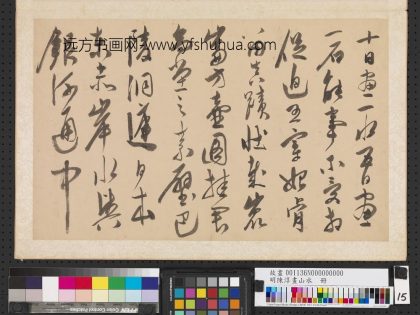 远方书画网-www.yfshuhua.com
十日畫一水五日畫
一石能事不受相
促迫王宰始肯
留真蹟壯哉崑
崙方壺圖掛君
高堂之素壁巴
陵洞庭日本
東赤岸水與
銀河通中
故畫 001136N000000000
明陳淳畫山水 冊
15